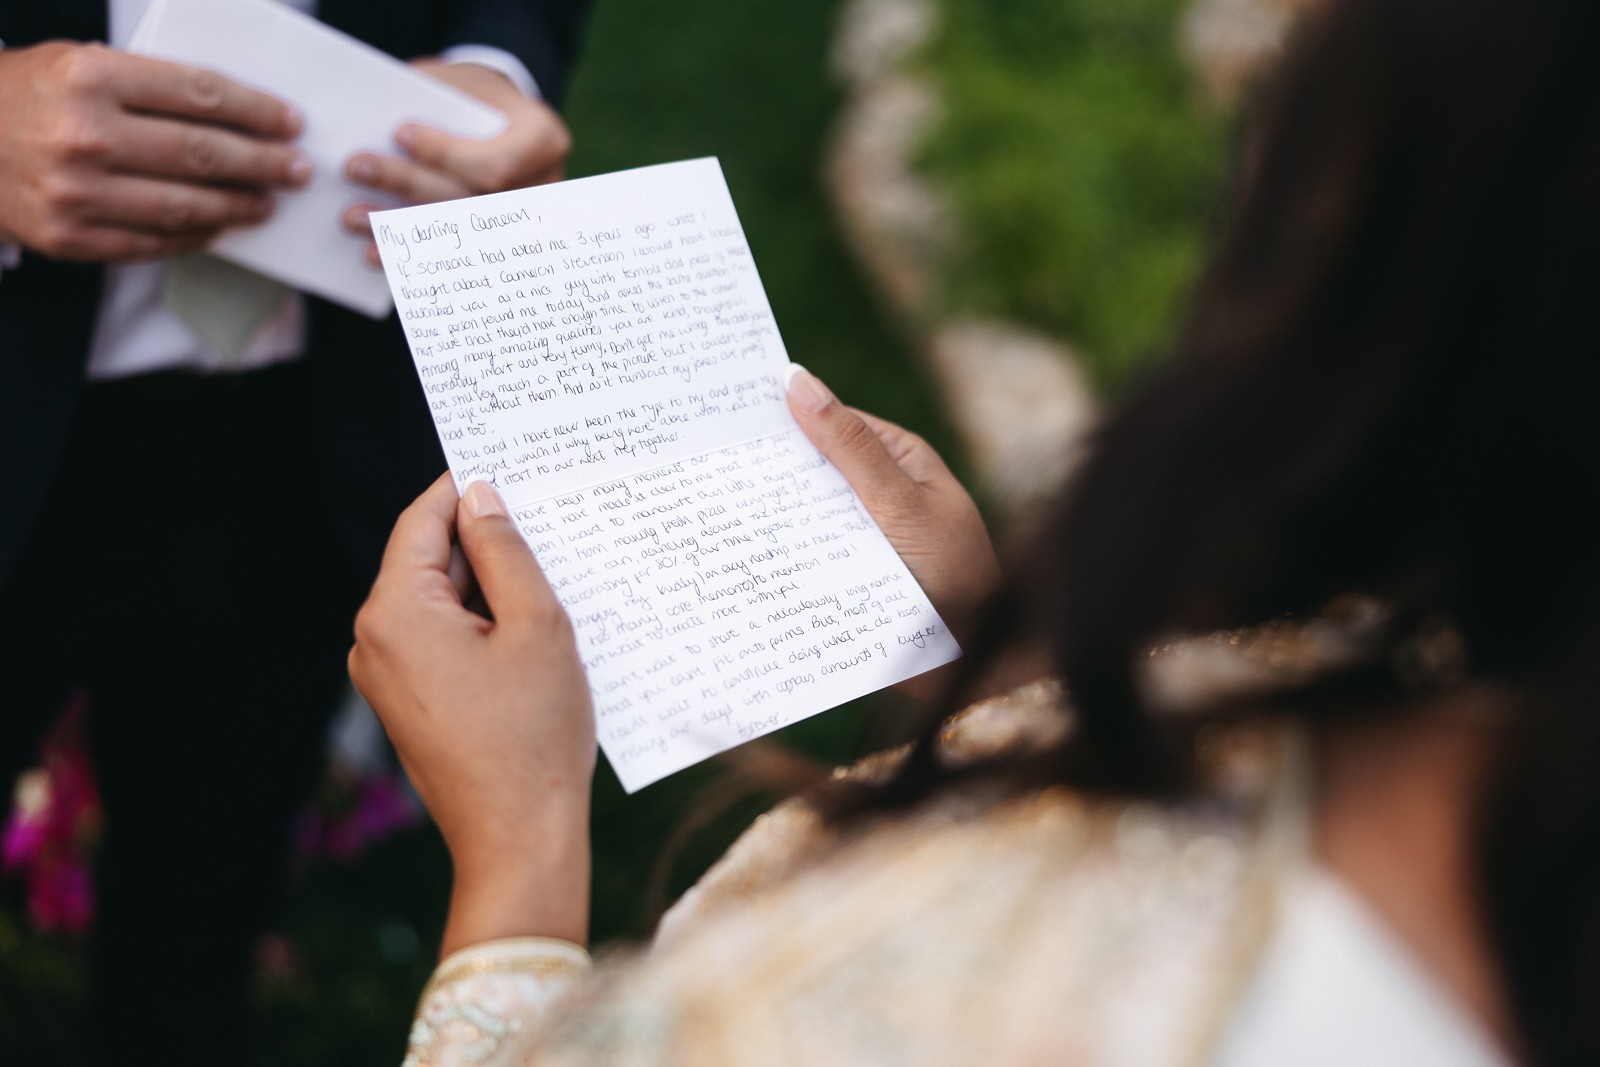 My darling Cameron,
If someone had asked me 3 years ago what I
thought about Cameron Stevenson I would have
described you as a nice guy with terrible dad jokes. If that
same person found me today and asked the same question I'm
not sure that they'd have enough time to listen to the answer.
Among many amazing qualities you are kind, thoughtful,
incredibly smart and very funny. Don't get me wrong the dad jokes
are still very much a part of the picture but I couldn't imagine
our life without them. And as it turns out my jokes are pretty
bad too.
You and I have never been the type to try and grab the
spotlight which is why being here alone with you is the
start to our next step together.
have been many moments over the last
that have made it clear to me that you are
I want to manouvre this little thing called
with. From making fresh pizza every night
we can, dancing around the house, building
decorating for 80% of our time together or
singing (my badly) on every roadtrip we take. There
too many core memories to mention and I
want to create more with you.
can't wait to share a ridiculously long name
that you can't fit onto forms. But, most of all
I can't wait to continue doing what we do best:
filling our days with copious amounts of laughter.
forever.